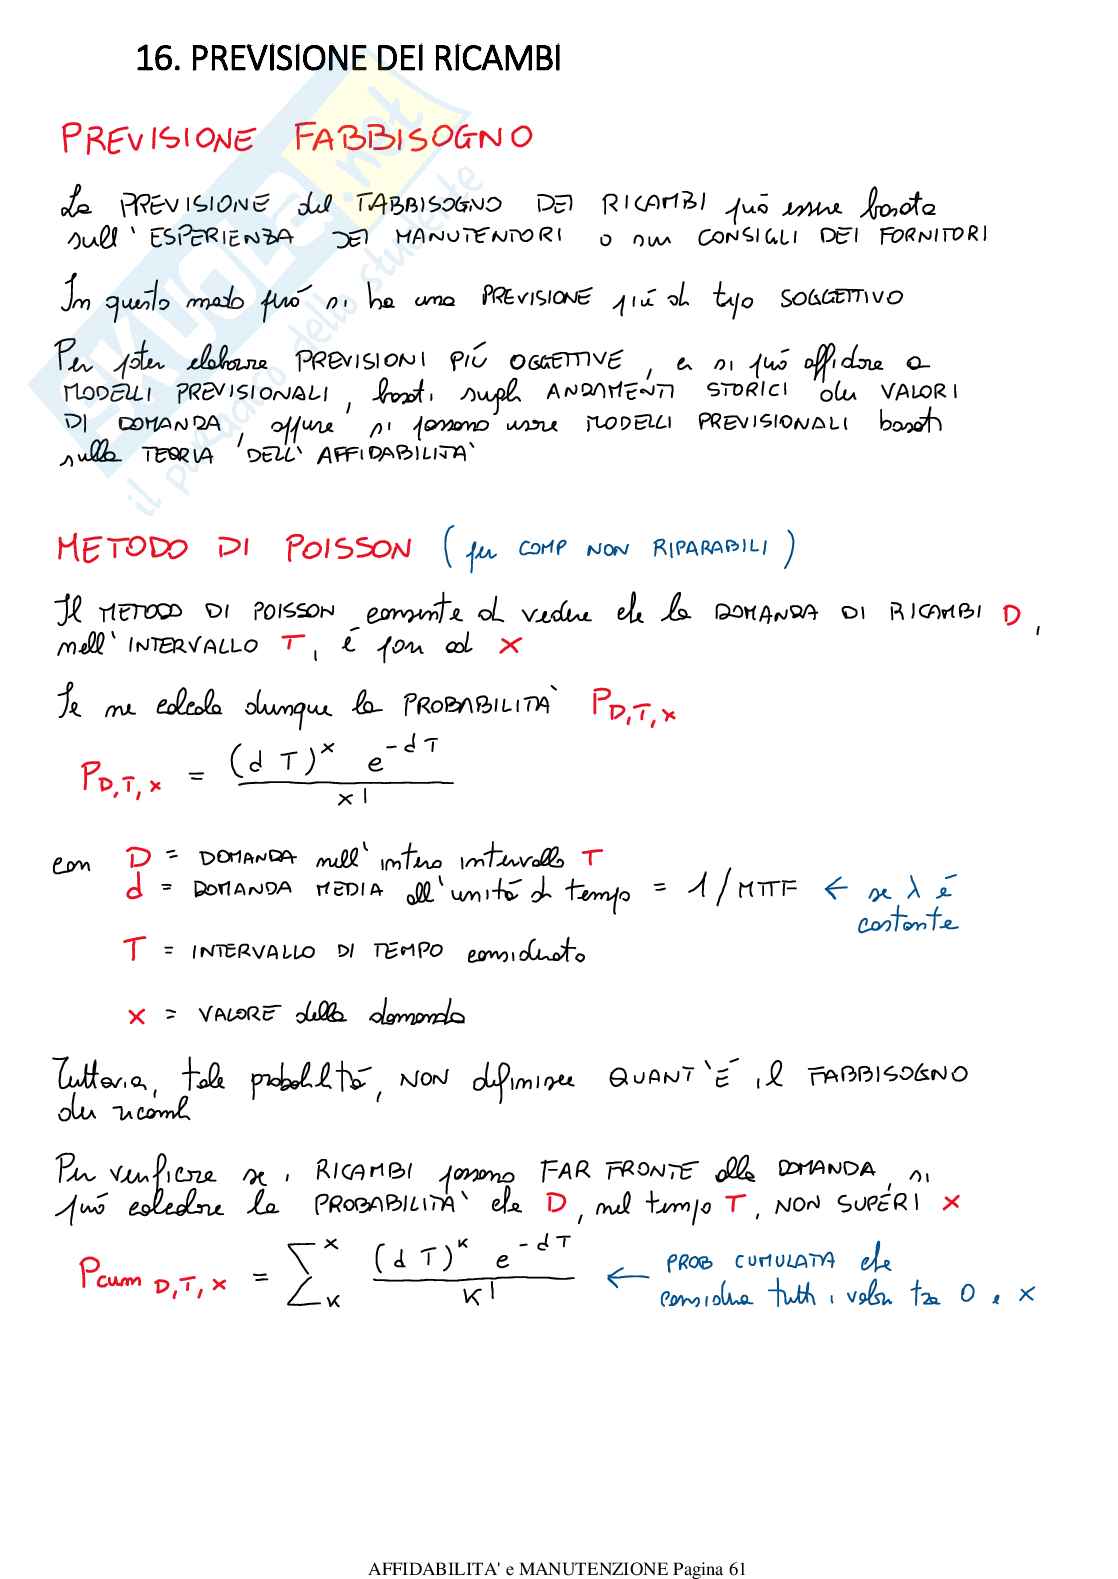 16. PREVISIONE DEI RICAMBI
PREVISIONE FABBISOGNO
La PREVISIONE del FABBISOGNO DEI RICAMBI può essere basata
sull'ESPERIENZA DEI MANUTENTORI o sui CONSIGLI DEI FORNITORI
In questo modo però si ha una PREVISIONE più di tipo SOGGETTIVO
Per poter elaborare PREVISIONI PIÚ OGGETTIVE, ci si può affidare a
MODELLI PREVISIONALI, basati sugli ANDAMENTI STORICI dei VALORI
DI DOMANDA, oppure si possono usare MODELLI PREVISIONALI basati
sulla TEORIA DELL'AFFIDABILITA'
METODO DI POISSON (per COMP NON RIPARABILI)
Il METODO DI POISSON consente di vedere che la DOMANDA DI RICAMBI D,
nell'INTERVALLO T, é pari ad x
Se ne calcola dunque la PROBABILITA' P_{D,T,x}
P_{D,T,x} = \frac{(d T)^x e^{-dT}}{x!}
con D = DOMANDA nell'intero intervallo T
d = DOMANDA MEDIA all'unitá di tempo = 1/MTTF ← se λ é
costante
T = INTERVALLO DI TEMPO considerato
x = VALORE della domanda
Tuttavia, tale probabilitá, NON definisce QUANT'É il FABBISOGNO
dei ricambi
Per verificare se i RICAMBI possono FAR FRONTE alla DOMANDA, si
può calcolare la PROBABILITA' che D, nel tempo T, NON SUPERI x
Pcum_{D,T,x} = \sum_{K}^{x} \frac{(d T)^K e^{-dT}}{K!} ← PROB CUMULATA che
considera tutti i valori tra 0 e x
AFFIDABILITA' e MANUTENZIONE Pagina 61
SKUOLA.net
il paradiso dello studente